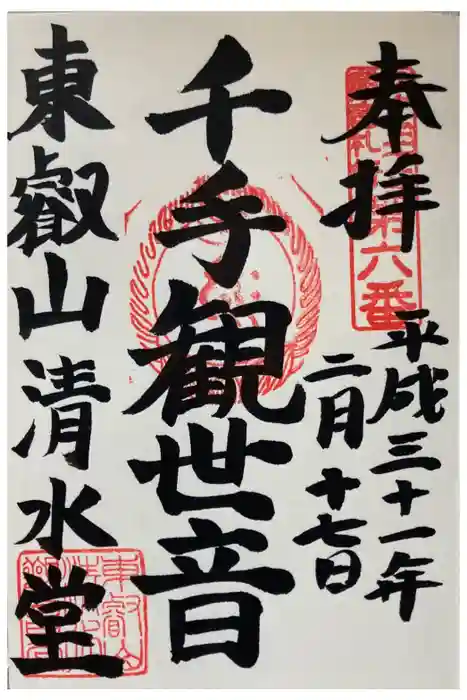 奉拝
平成三十一年
二月十七日
千手観世音
東叡山清水堂
六番